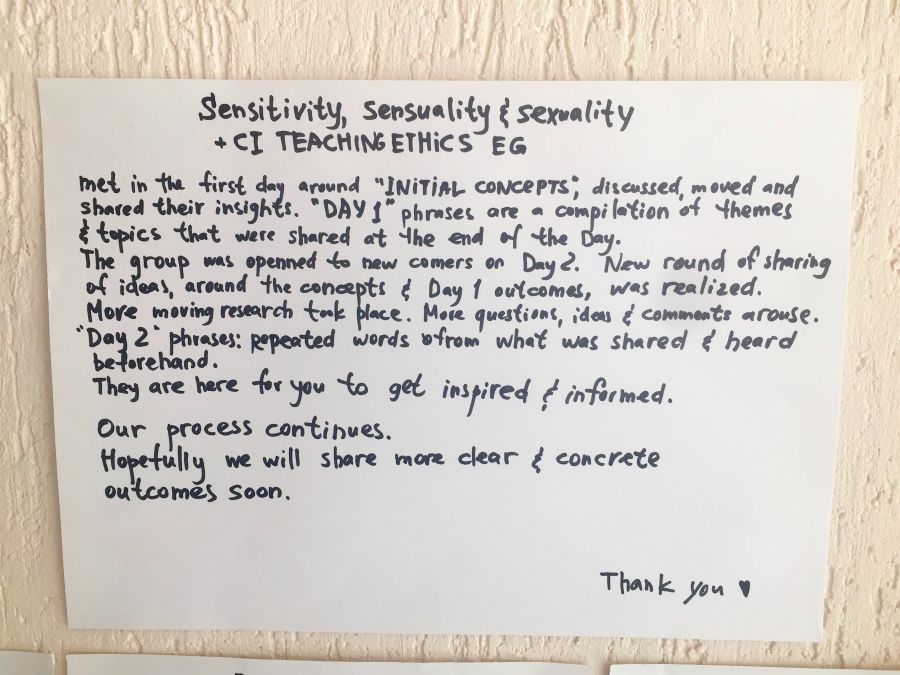 Sensitivity, Sensuality & sexuality
+ CI TEACHING ETHiCS EG
met in the first day around "INiTiAL CONCEPTS", discussed, moved and
shared their insights. "DAY 1" phrases are a compilation of themes
& topics that were shared at the end of the Day.
The group was openned to new comers on Day 2. New round of sharing
of ideas, around the concepts & Day 1 outcomes, was realized.
More moving research took place. More questions, ideas & comments arouse.
"Day 2" phrases: repeated words from what was shared & heard
beforehand.
They are here for you to get inspired & informed.
Our process continues.
Hopefully we will share more clear & concrete
outcomes soon.
Thank you ♥